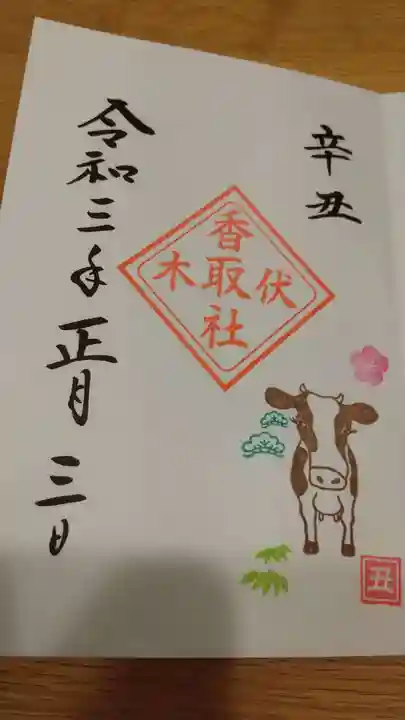 辛丑
伏木
香取社
丑
令和三年正月三日